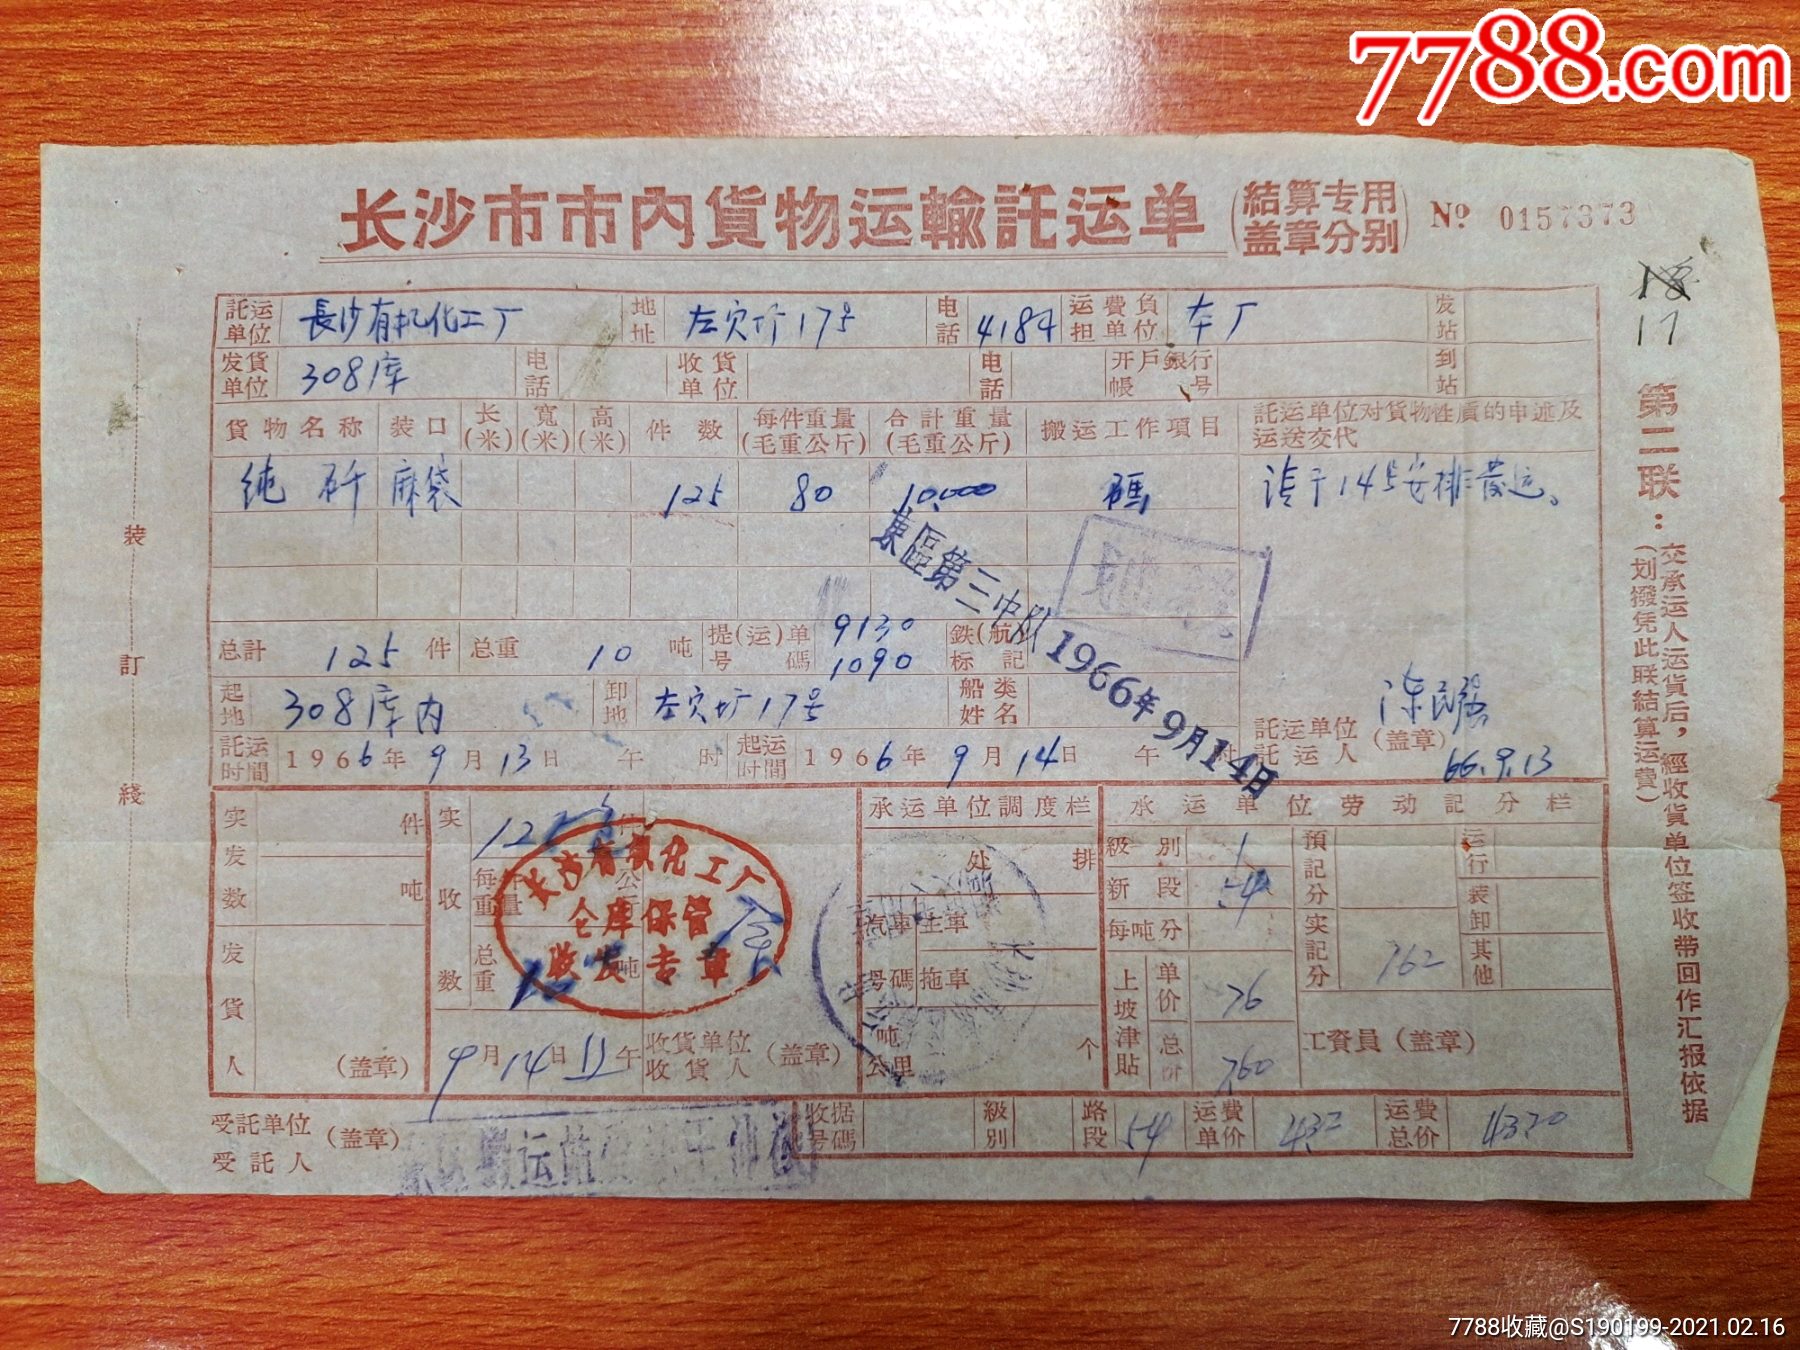 7788.com
长沙市市内貨物运輸託运单 (結算专用 盖章分别) № 0157373
17
託运单位 長沙有机化工厂 地址 17号 电話 4184 运費負担单位 本厂 发站
发货单位 308库 电話 收货单位 电話 开戶銀行帳号 到站
貨物名称 装口 长(米) 寬(米) 高(米) 件数 每件重量(毛重公斤) 合計重量(毛重公斤) 搬运工作項目 託运单位对貨物性质的申述及运送交代
纯 麻袋 125 80 10.000 碼 请于14号安排发运。
東區第三中队
1966年9月14日
总計 125 件 总重 10 吨 提(运)单号碼 9130 1090 鉄(航)标記
起地 308库内 卸地 17号 船类姓名
託运时間 1966年9月13日 午 时 起运时間 1966年9月14日 午 时
託运单位託运人 (盖章) 66.9.13
实发数 件 吨
发货人 (盖章)
实收数 件 每件重量 公斤 总重 10 吨
长沙有机化工厂
仓库保管
收发专章
9月14日 午 收货单位收货人 (盖章)
承运单位調度栏
处 排
汽車号碼 主車 拖車
吨公里 个
承运单位劳动記分栏
級別 1
新段 54
每吨分
上坡津貼 单价 76 总价 760
預記分
实記分 762
运行
装卸
其他
工資員(盖章)
受託单位受託人 (盖章)
收据号碼 級別 路段 54 运費单价 432 运費总价 4320
装訂綫
第二联：交承运人运货后，經收货单位签收带回作汇报依据
(划撥凭此联結算运費)
7788收藏@S190199-2021.02.16